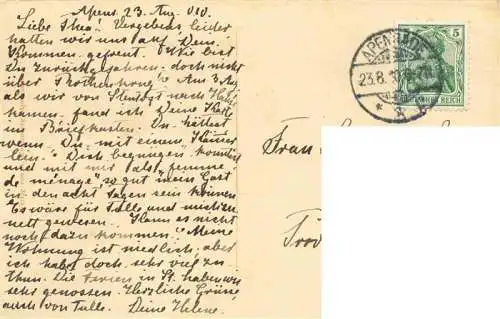 Apenr. 23. Aug. 010.
Liebe Thea! Vergebens leider
hatten wir uns auf Dein
Kommen gefreut. Wie bist
Du zurückgefahren, doch nicht
über Rothenkrug? Am 3. Aug.
als wir von nach
kamen, fand ich Deine Karte
im Briefkasten. Du hättest
wenn Du mit einem
lein" Dich begnügen konntest
und mit mir als "femme
de ménage", so gut mein Gast
in den acht Tagen sein können.
Es wäre für Tulle und mich zu
nett gewesen. Kann es nicht
noch dazu kommen? Meine
Wohnung ist niedlich, aber
ich habe doch sehr viel zu
thun. Die Ferien in St. haben wir
sehr genossen. Herzliche Grüße
auch von Tulle. Deine Helene.
APENRADE
23.8.10
5
DEUTSCHES REICH
Frau